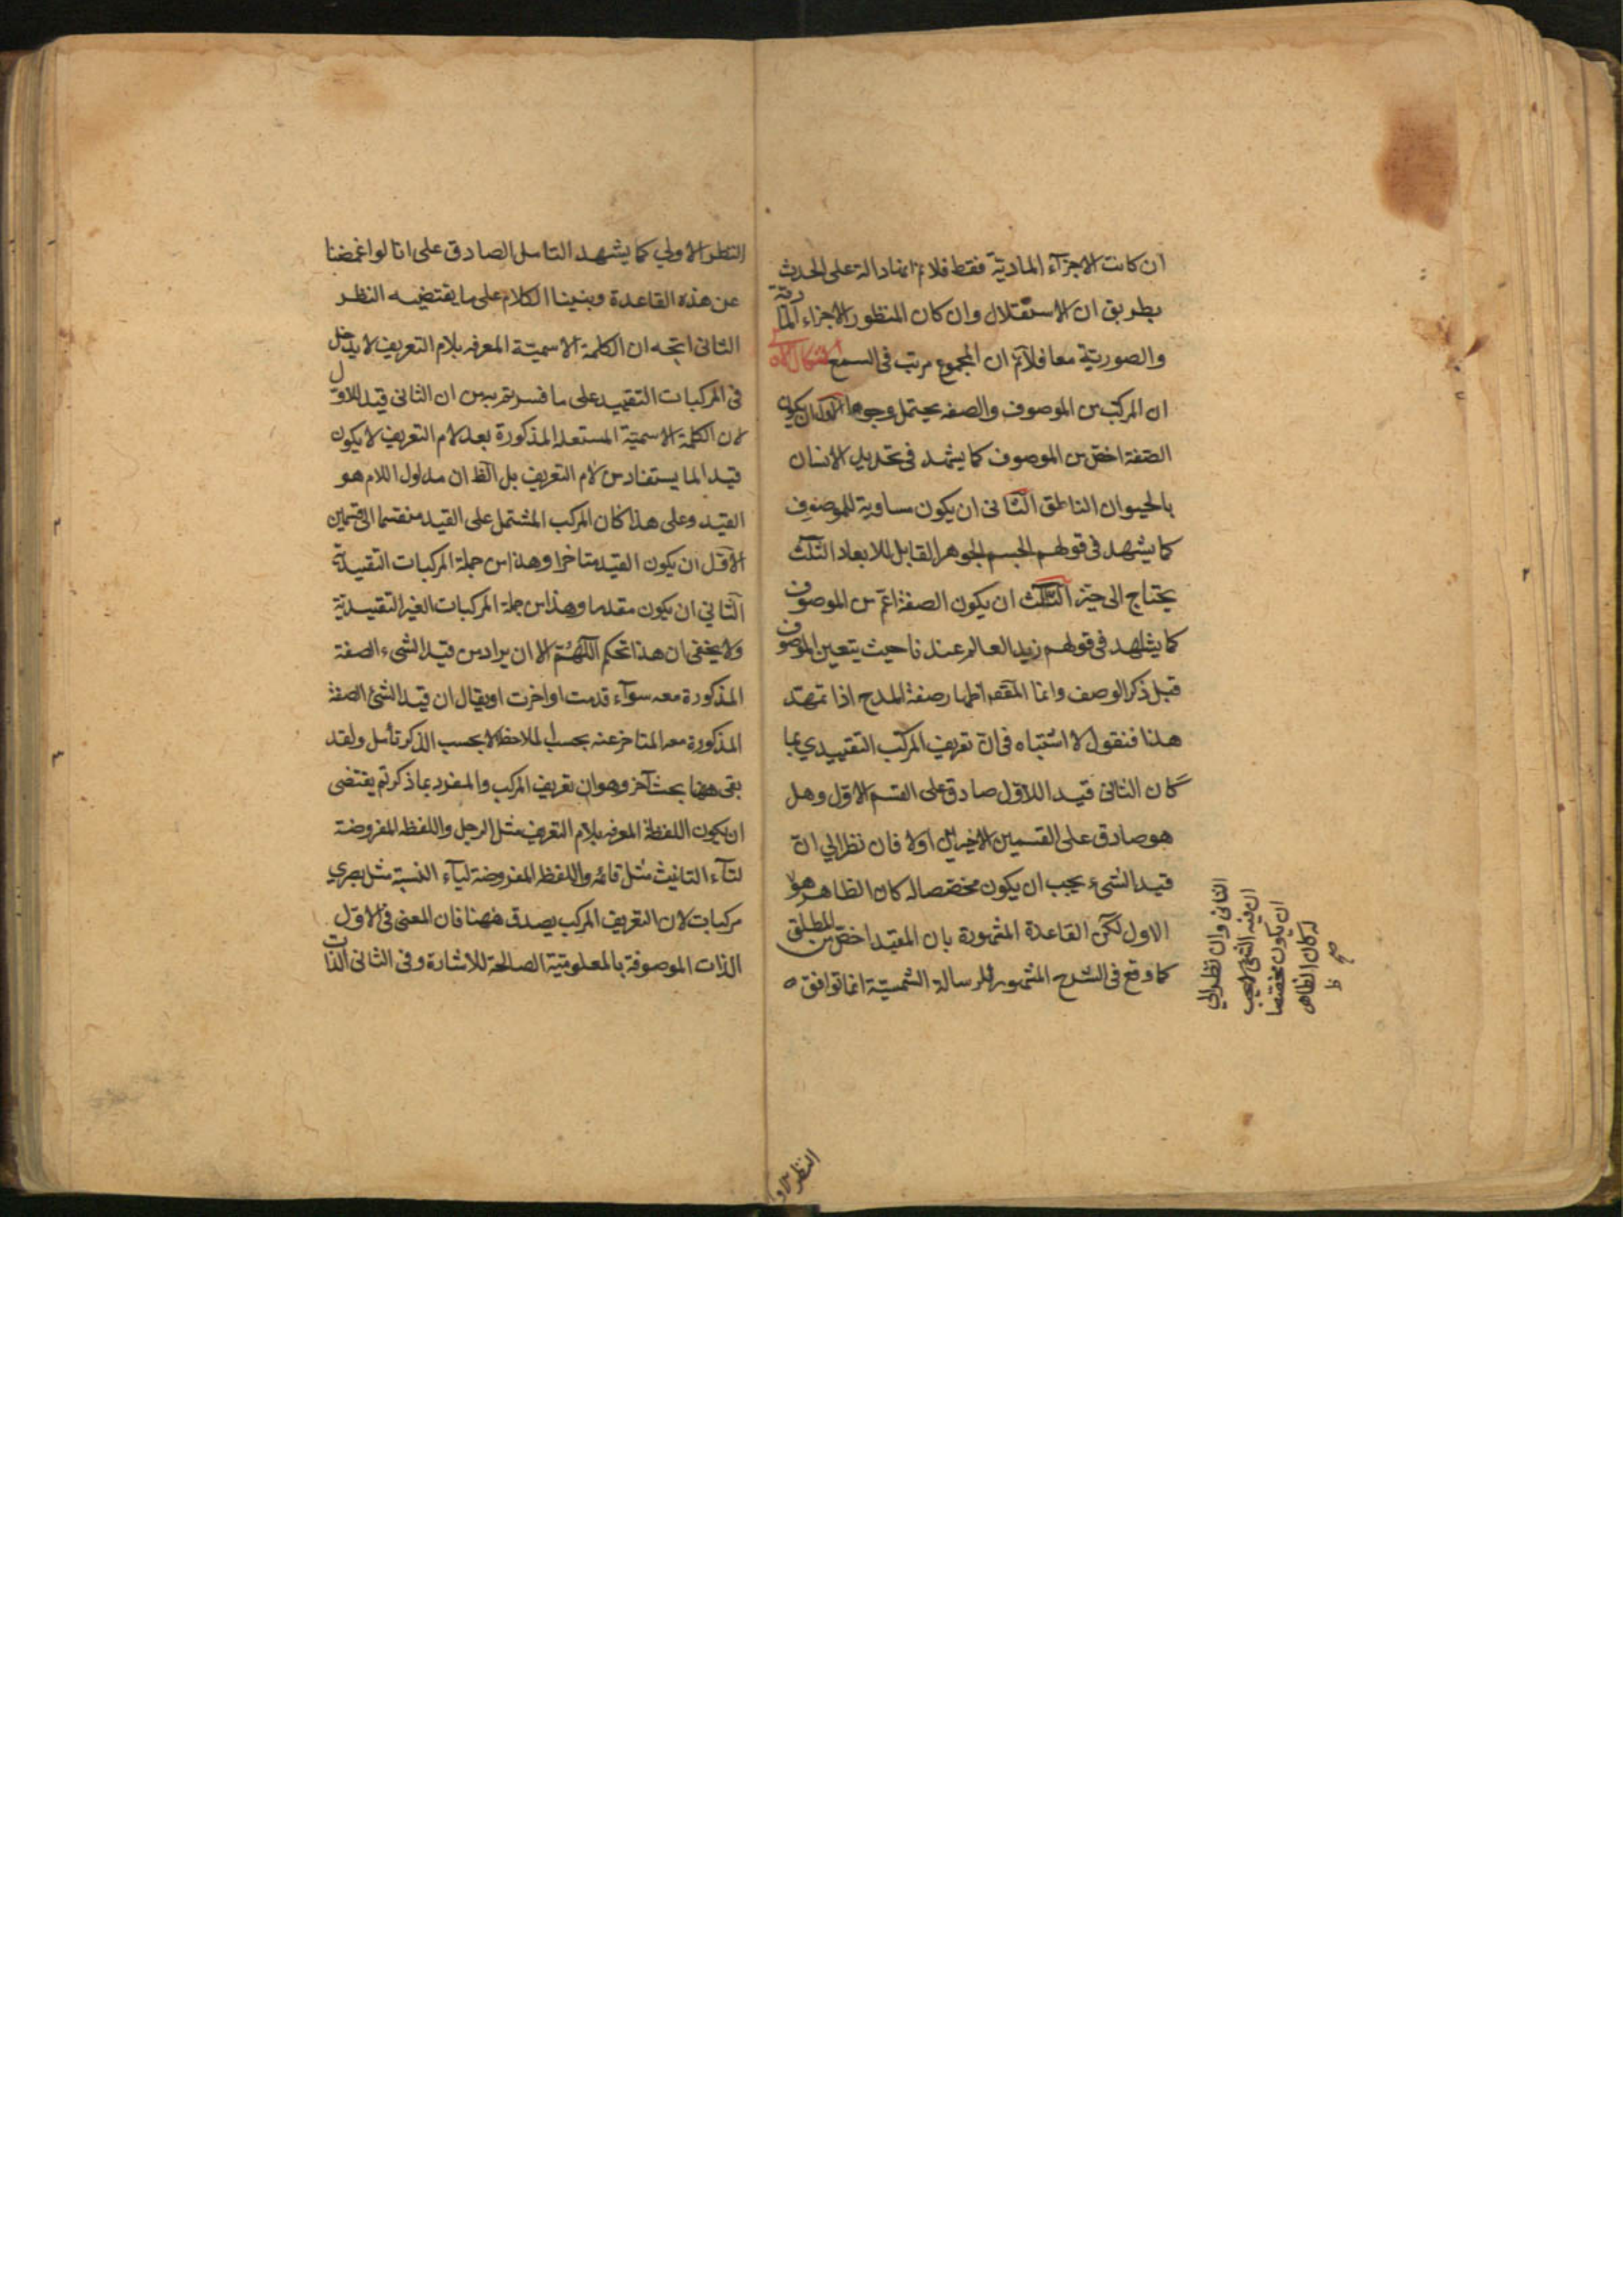 ان كانت الاجزاء المادية فقط فلا نم انها دالة على الحدث
بطريق ان الاستقلال وان كان المنظور الاجزاء الما
دية
والصورية معا فلا نم ان المجموع مرتب فى السمع
ان المركب من الموصوف والصفه يحتمل وجوها الاول ان يكون
الصفة اخص من الموصوف كما يشهد فى تحديد الانسان
بالحيوان الناطق الثانى ان يكون مساوية للموصوف
كما يشهد فى قولهم الجسم الجوهر القابل للابعاد الثلث
يحتاج الى حيز الثالث ان يكون الصفة اعم من الموصوف
كما يشهد فى قولهم زيد العالم عندنا حيث يتعين الموصوف
قبل ذكر الوصف وانما المقصـ اظهار صفة المدح اذا تمهّد
هذا فنقول لا اشتباه فى انّ تعريف المركب التقييدي بما
كان الثانى قيد اللاول صادق على القسم الاول وهل
هو صادق على القسمين الاخيرين اولا فان نظر الي ان
قيد الشىء يجب ان يكون مخصصا له كان الظاهر هو
الاول لكن القاعدة المشهورة بان المقيد اخص من المطلق
كما وقع فى الشرح المشهور للرسالة الشمسيّة انما توافق
الثانى وان نظر الي
ان قيد الشئ لا يجب
ان يكون مخصصا
له كان الظاهر
صح
ظ
النظر الاو
النظر الاولي كما يشهد التامل الصادق على انا لو اغمضنا
عن هذه القاعدة وبنينا الكلام على ما يقتضيه النظر
الثانى اتجه ان الكلمة الاسميّة المعرفه بلام التعريف لا يدخل
فى المركبات التقييد على ما فسرتم به من ان الثانى قيد للاول
لان الكلمة الاسميّة المستعمله المذكورة بعد لام التعريف لا يكون
قيدا لما يستفاد من لام التعريف بل الظ ان مدلول اللام هو
القيد وعلى هذا كان المركب المشتمل على القيد منقسما الى قسمين
الاول ان يكون القيد متاخرا وهذا من جملة المركبات التقييديّة
الثاني ان يكون مقدما وهذا من جملة المركبات الغير التقييديّة
ولا يخفى ان هذا تحكم اللّهُمّ الا ان يراد من قيد الشىء الصفة
المذكورة معه سوآء قدمت او اخرت او يقال ان قيد الشئ الصفة
المذكورة معه المتاخر عنه بحسب الملاحظه لا بحسب الذكر تأمل ولقد
بقى ههنا بحث آخر وهو ان تعريف المركب والمفرد بما ذكرتم يقتضى
ان يكون اللفظة المعرفه بلام التعريف مثل الرجل واللفظه المفروضة
لتآء التانيث مثل قائمة واللفظه المفروضة ليآء النسبة مثل بصري
مركبات لان التعريف المركب يصدق ههنا فان المعنى فى الاول
الذات الموصوفة بالمعلومتية الصالحة للاشارة وفى الثانى الذات